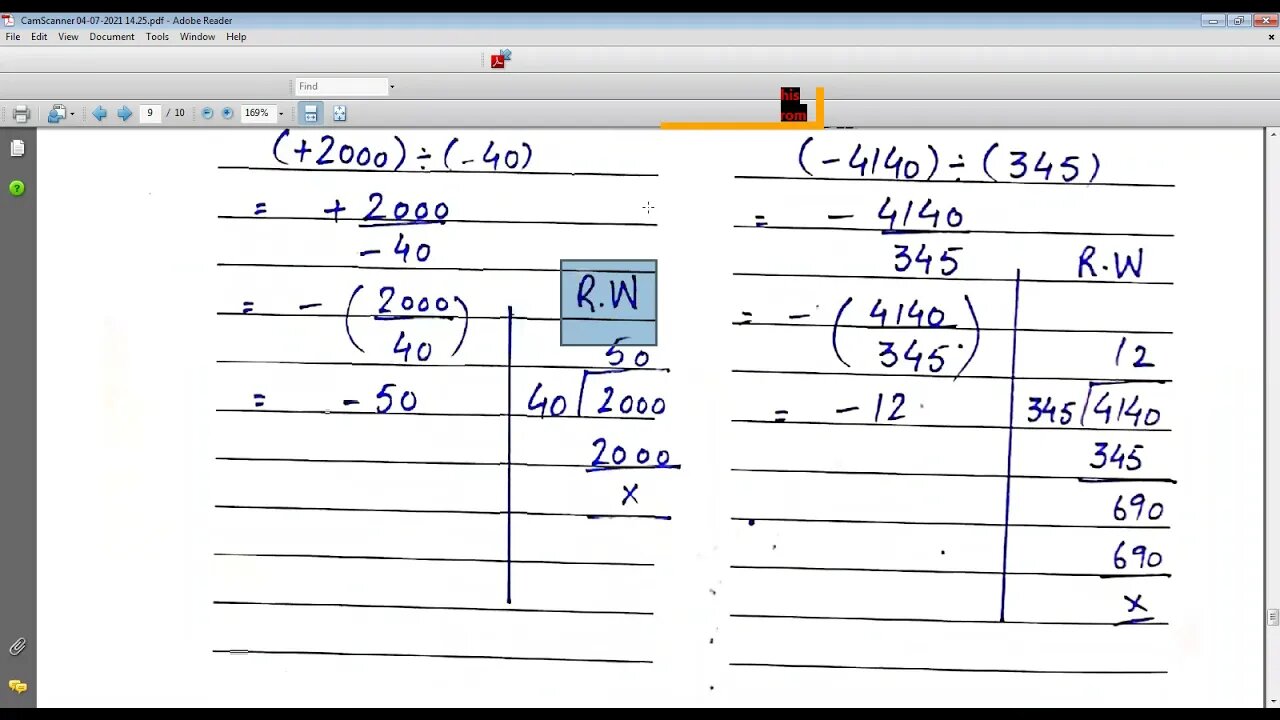 CamScanner 04-07-2021 14.25.pdf - Adobe Reader
File Edit View Document Tools Window Help
Find
9 / 10 169%
his
rom
(+2000) ÷ (-40)
= + 2000
- 40
= - (2000
40)
R.W
50
= - 50
40 2000
2000
x
(-4140) ÷ (345)
= - 4140
345
R.W
= - (4140
345)
12
= - 12
345 4140
345
690
690
x